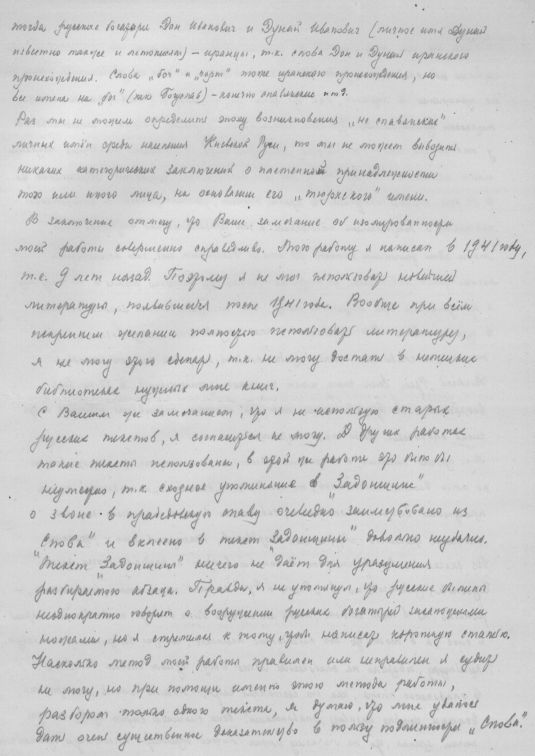 тогда русские богатыри Дон Иванович и Дунай Иванович (личное имя Дунай
известно также и летописи) – иранцы, т.к. слова Дон и Дунай иранского
происхождения. Слова „бог" и „чорт" тоже иранского происхождения, но
все имена на „бог" (как Богуслав) – конечно славянские и т.д.
Раз мы не можем определить эпоху возникновения „не славянских"
личных имён среди населения Киевской Руси, то мы не можем выводить
никаких категорических заключений о племенной принадлежности
того или иного лица, на основании его „тюркского" имени.
В заключение отмечу, что Ваше замечание об изолированности
моей работы совершенно справедливо. Мою работу я написал в 1941 году,
т.е. 9 лет назад. Поэтому я не мог использовать новейшей
литературы, появившейся после 1941 года. Вообще при всём
искреннем желании полностью использовать литературу,
я не могу этого сделать, т.к. не могу достать в немецких
библиотеках нужных мне книг.
С Вашим же замечанием, что я не использую старых
русских текстов, я согласиться не могу. В других работах
такие тексты использованы, в этой же работе это было бы
неуместно, т.к. сходное упоминание в "Задонщине"
о звоне в прадедовскую славу очевидно "заимствовано из
"Слова" и вклеено в текст Задонщины" довольно неудачно.
"Текст "Задонщины" ничего не даёт для уразумения
разбираемого абзаца. Правда, я не упомянул, что русские былины
неоднократно говорят о вооружении русских богатырей засапошными
ножами, но я стремился к тому, чтобы написать короткую статью.
Насколько метод моей работы правилен или неправилен я судить
не могу, но при помощи именно этого метода работы,
разбором только одного текста, я думаю, что мне удалось
дать очень существенное доказательство в пользу подлинности „Слова".